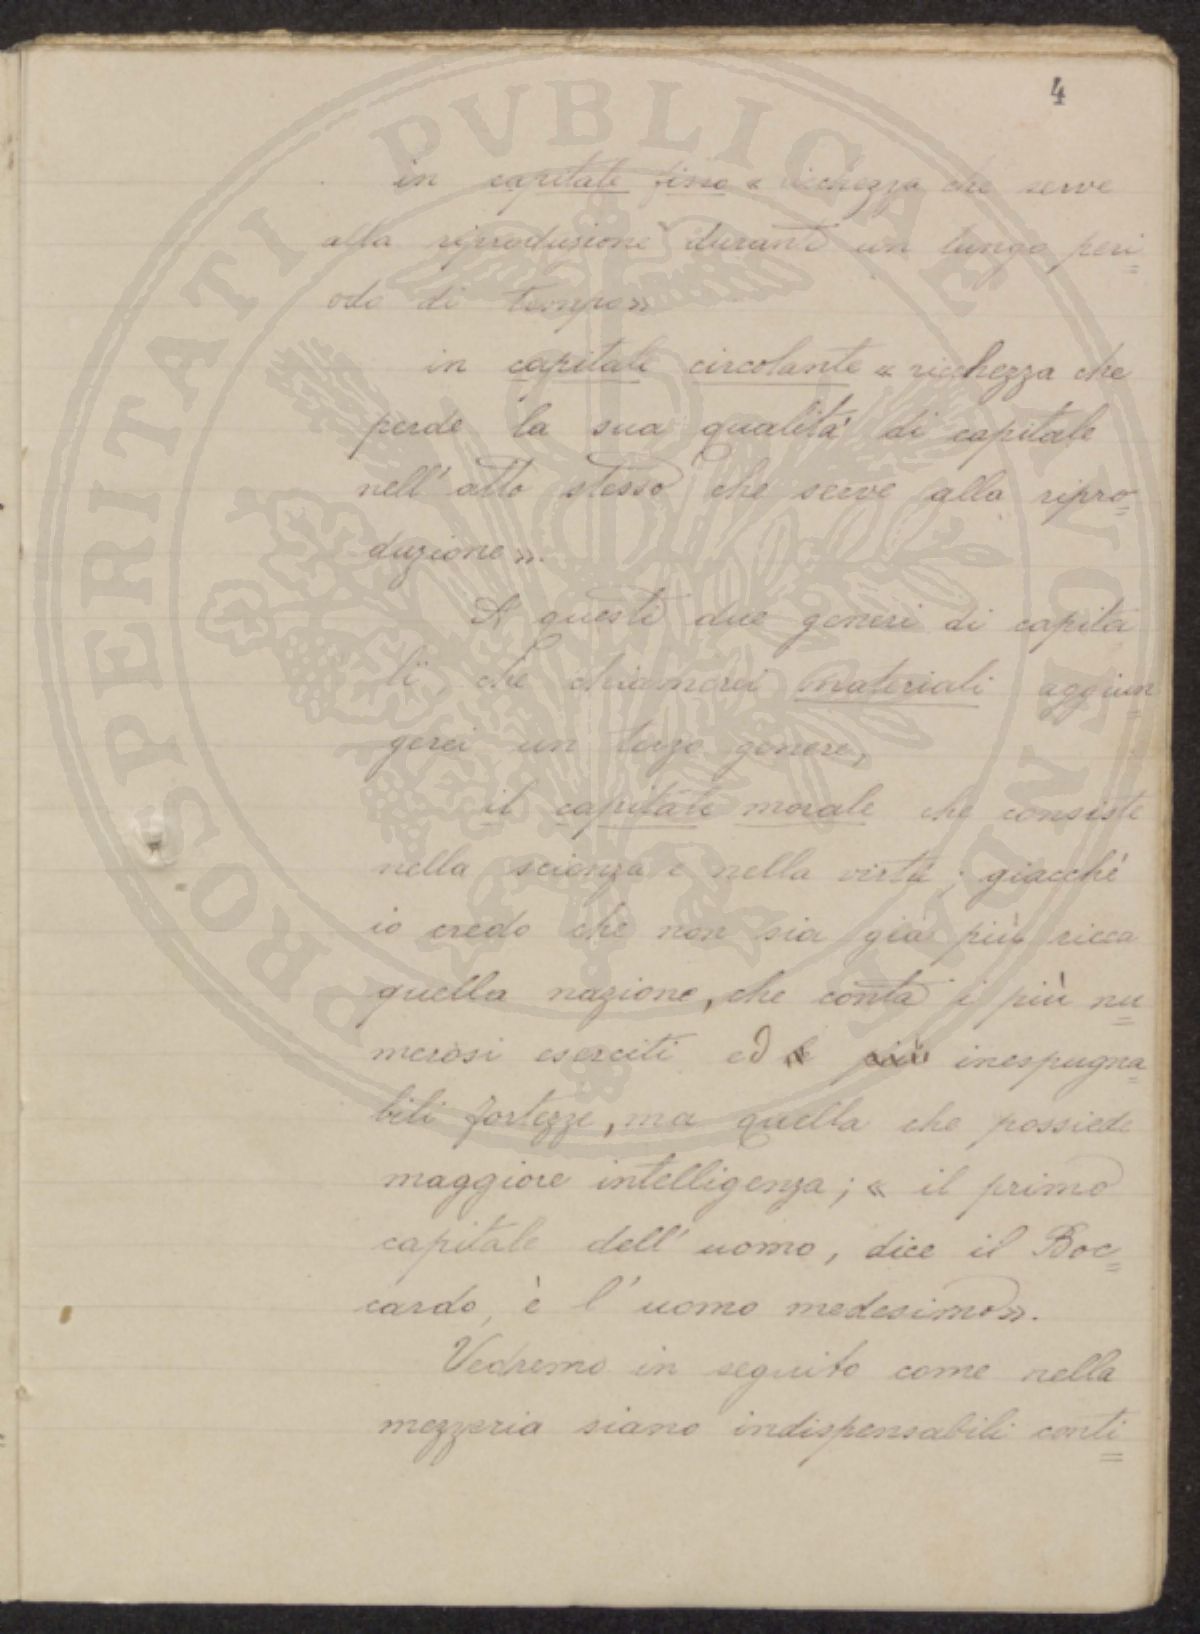 4
in capitale fisso « ricchezza che serve
alla riproduzione durante un lungo peri=
odo di tempo»
in capitale circolante « ricchezza che
perde la sua qualità di capitale
nell'atto stesso che serve alla ripro=
duzione».
A questi due generi di capita
li, che chiamerei materiali aggiun=
gerei un terzo genere,
il capitale morale che consiste
nella scienza e nella virtù; giacché
io credo che non sia già più ricca
quella nazione, che conta i più nu=
merosi eserciti ed le più inespugna=
bili fortezze, ma quella che possiede
maggiore intelligenza; « il primo
capitale dell'uomo, dice il Boc=
cardo, è l'uomo medesimo».
Vedremo in seguito come nella
mezzeria siano indispensabili conti=
PROSPERITATI PVBLICAE AVGENDAE